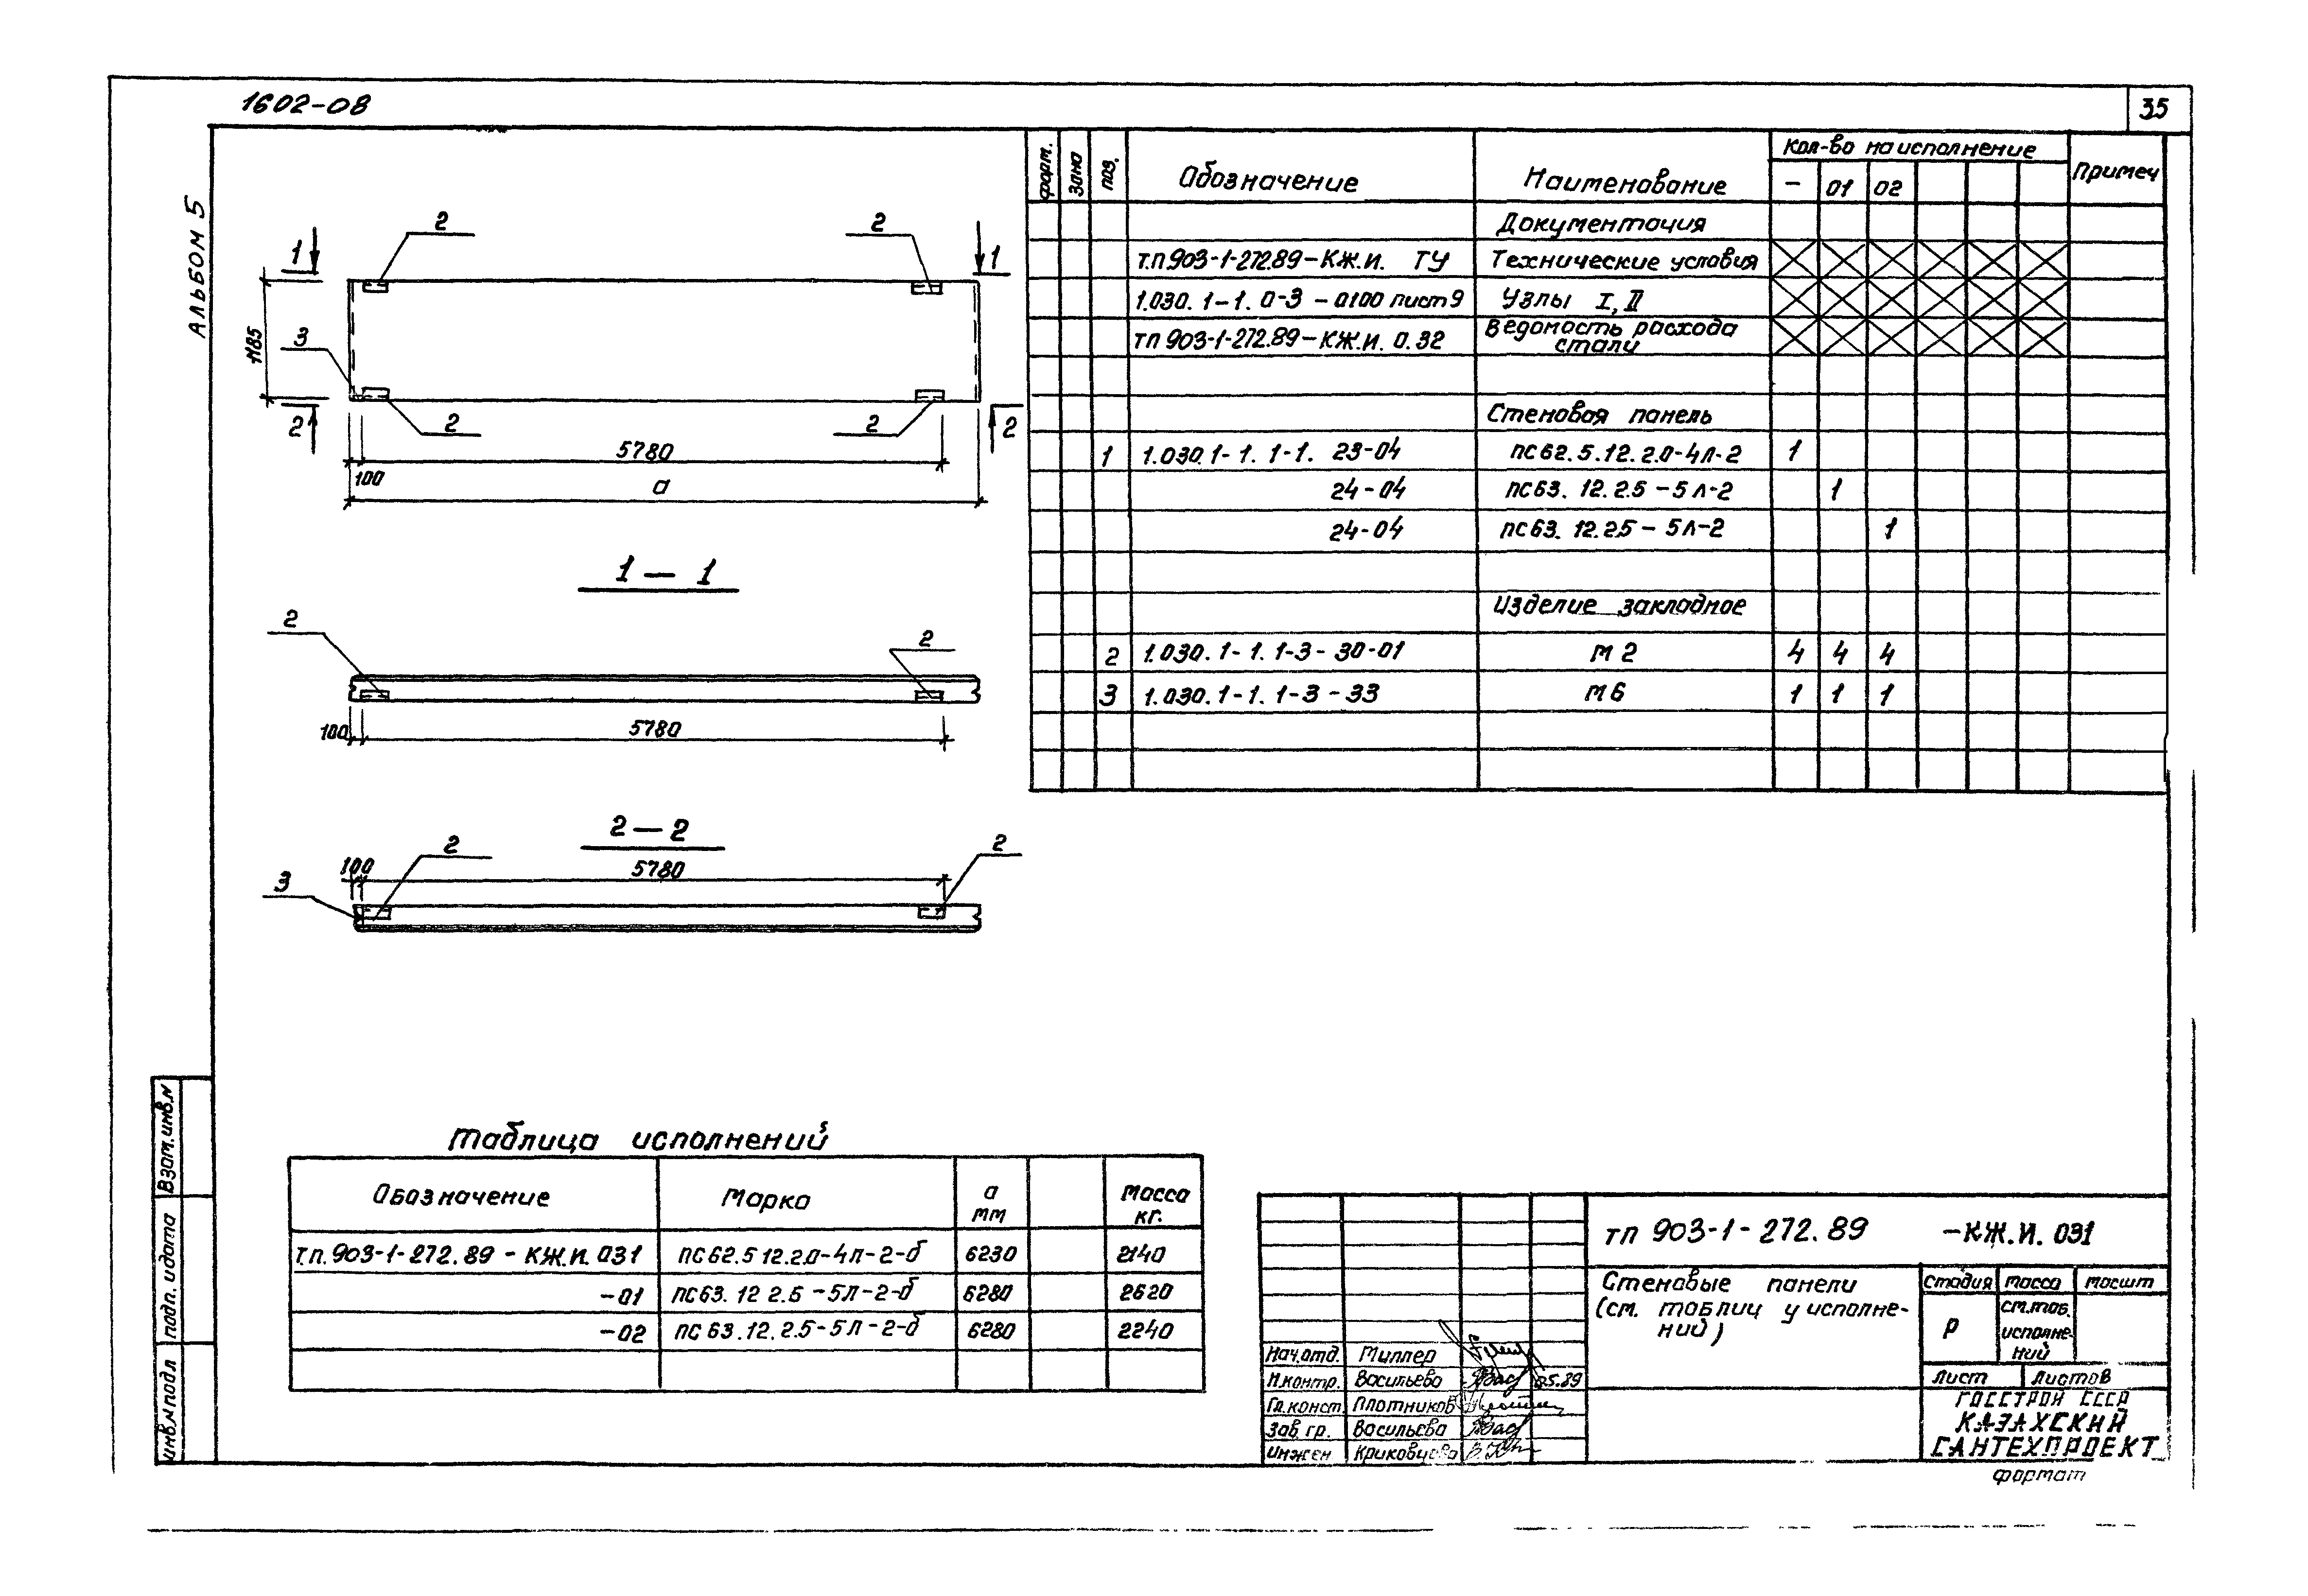 1602-08
35
АЛЬБОМ 5
2
2
1
1
1185
3
2
2
2
2
5780
100
а
1 — 1
2
2
100
5780
2 — 2
2
2
100
5780
3
форм.
зона
поз.
Обозначение
Наименование
Кол-во на исполнение
Примеч
— 01 02
Документация
т.п.903-1-272.89-КЖ.И. ТУ Технические условия
1.030.1-1.0-3-0100 лист 9 Узлы I, II
тп 903-1-272.89-КЖ.И.0.32 Ведомость расхода стали
Стеновая панель
1 1.030.1-1.1-1. 23-04 ПС62.5.12.2.0-4Л-2 1
24-04 ПС63.12.2.5-5Л-2 1
24-04 ПС63.12.2.5-5Л-2 1
Изделие закладное
2 1.030.1-1.1-3-30-01 М2 4 4 4
3 1.030.1-1.1-3-33 М6 1 1 1
Таблица исполнений
Обозначение Марка а мм Масса кг.
т.п.903-1-272.89-КЖ.И.031 ПС62.5 12.2.0-4Л-2-б 6230 2140
-01 ПС63.12 2.6-5Л-2-б 6280 2620
-02 ПС63.12.2.5-5Л-2-б 6280 2240
Взам.инв.N
подп. и дата
инв.N подл
тп 903-1-272.89 -КЖ.И.031
Стеновые панели
(см. таблицу исполнений)
Стадия Масса Масшт
Р
см.таб. исполнений
Лист Листов
Нач.отд. Миллер
Н.контр. Васильева 05.89
Гл.конст. Плотников
Зав.гр. Васильева
Инжен Криковцова
ГОССТРОЙ СССР
КАЗАХСКИЙ
САНТЕХПРОЕКТ
формат